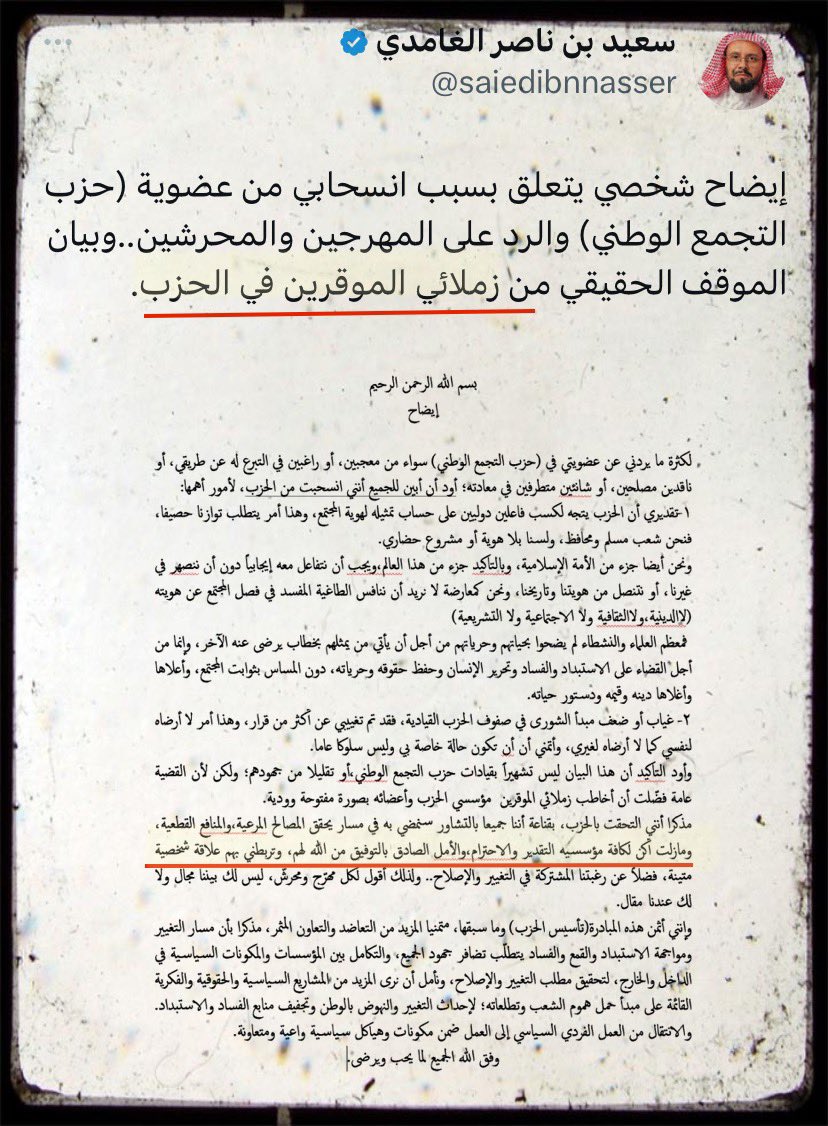 سعيد بن ناصر الغامدي
@saiedibnnasser
إيضاح شخصي يتعلق بسبب انسحابي من عضوية (حزب
التجمع الوطني) والرد على المهرجين والمحرشين..وبيان
الموقف الحقيقي من زملائي الموقرين في الحزب.
بسم الله الرحمن الرحيم
إيضاح
لكثرة ما يردني عن عضويتي في (حزب التجمع الوطني) سواء من معجبين، أو راغبين في التبرع له عن طريقي، أو
ناقدين مصلحين، أو شانئين متطرفين في معادته؛ أود أن أبين للجميع أنني انسحبت من الحزب، لأمور أهمها:
١-تقديري أن الحزب يتجه لكسب فاعلين دوليين على حساب تمثيله لهوية المجتمع، وهذا أمر يتطلب توازنا حصيفا،
فنحن شعب مسلم ومحافظ، ولسنا بلا هوية أو مشروع حضاري.
ونحن أيضا جزء من الأمة الإسلامية، وبالتأكيد جزء من هذا العالم،ويجب أن نتفاعل معه إيجابياً دون أن ننصهر في
غيرنا، أو نتنصل من هويتنا وتاريخنا، ونحن كمعارضة لا نريد أن ننافس الطاغية المفسد في فصل المجتمع عن هويته
(لاالدينية،ولاالثقافية ولا الاجتماعية ولا التشريعية)
فمعظم العلماء والنشطاء لم يضحوا بحياتهم وحرياتهم من أجل أن يأتي من يمثلهم بخطاب يرضى عنه الآخر، وإنما من
أجل القضاء على الاستبداد والفساد وتحرير الإنسان وحفظ حقوقه وحرياته، دون المساس بثوابت المجتمع، وأعلاها
وأغلاها دينه وقيمه ودستور حياته.
٢- غياب أو ضعف مبدأ الشورى في صفوف الحزب القيادية، فقد تم تغييبي عن أكثر من قرار، وهذا أمر لا أرضاه
لنفسي كما لا أرضاه لغيري، وأتمنى أن أن تكون حالة خاصة بي وليس سلوكا عاما.
وأود التأكيد أن هذا البيان ليس تشهيراً بقيادات حزب التجمع الوطني،أو تقليلا من جهودهم؛ ولكن لأن القضية
عامة فضّلت أن أخاطب زملائي الموقرين مؤسسي الحزب وأعضائه بصورة مفتوحة وودية.
مذكرا أنني التحقت بالحزب، بقناعة أننا جميعا بالتشاور سنمضي به في مسار يحقق المصالح المرعية،والمنافع القطعية،
ومازلت أكن لكافة مؤسسيه التقدير والاحترام،والأمل الصادق بالتوفيق من الله لهم، وتربطني بهم علاقة شخصية
متينة، فضلاً عن رغبتنا المشتركة في التغيير والإصلاح.. ولذلك أقول لكل مهرّج ومحرش، ليس لك بيننا مجال ولا
لك عندنا مقال.
وإنني أثمن هذه المبادرة(تأسيس الحزب) وما سبقها، متمنيا المزيد من التعاضد والتعاون المثمر، مذكرا بأن مسار التغيير
ومواجهة الاستبداد والقمع والفساد يتطلّب تضافر جهود الجميع، والتكامل بين المؤسسات والمكونات السياسية في
الداخل والخارج، لتحقيق مطلب التغيير والإصلاح، ونأمل أن نرى المزيد من المشاريع السياسية والحقوقية والفكرية
القائمة على مبدأ حمل هموم الشعب وتطلعاته؛ لإحداث التغيير والنهوض بالوطن وتجفيف منابع الفساد والاستبداد.
والانتقال من العمل الفردي السياسي إلى العمل ضمن مكونات وهياكل سياسية واعية ومتعاونة.
وفق الله الجميع لما يحب ويرضى.